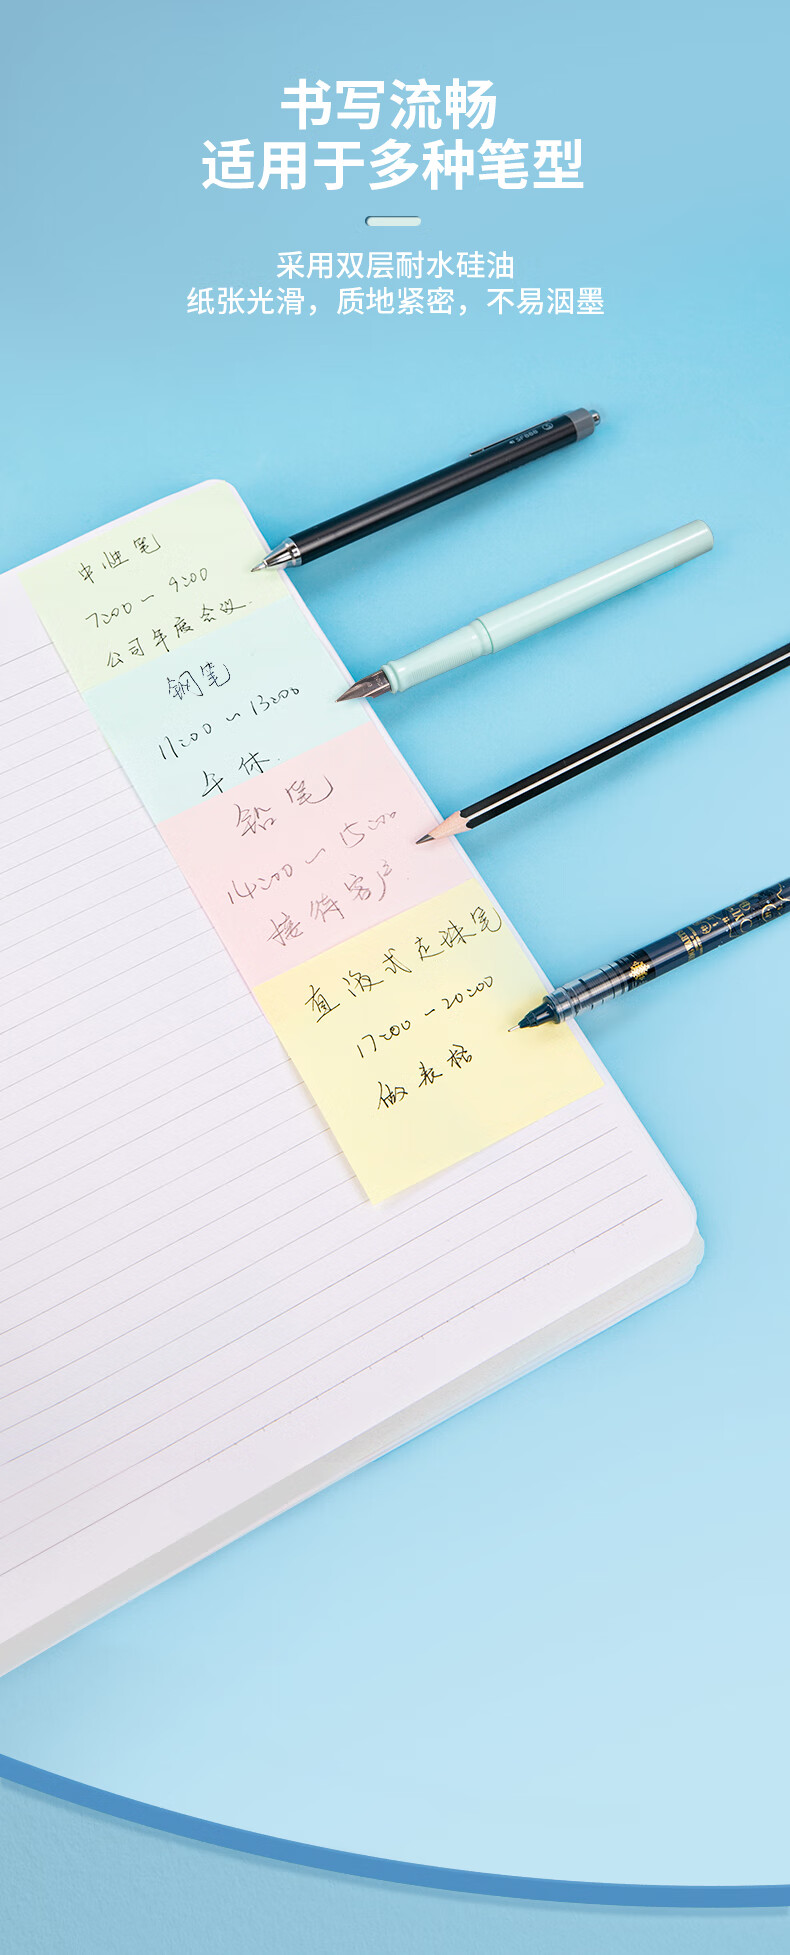 书写流畅
适用于多种笔型
采用双层耐水硅油
纸张光滑，质地紧密，不易洇墨
中性笔
7:00-9:00
公司年度会议.
钢笔
11:00-13:00
午休.
铅笔
14:00-15:00
接待客户
直液式走珠笔
17:00-20:00
做表格